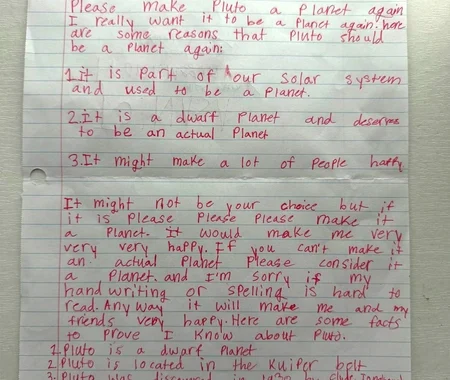 Please make Pluto a planet again
I really want it to be a planet again. here
are some reasons that Pluto should
be a planet again:
1.it is part of our solar system
and used to be a planet.
2.it is a dwarf planet and deserves
to be an actual planet
3.It might make a lot of people happy
It might not be your choice but if
it is please please please make it
a planet. it would make me very
very very happy. If you can't make it
an actual planet please consider it
a planet. and I'm sorry if my
handwriting or spelling is hard to
read. Any way it will make me and my
friends very happy. Here are some facts
to prove I know about Pluto.
1. Pluto is a dwarf planet
2 Pluto is located in the Kuiper belt
3. Pluto was discovered in 1930 by Clyde